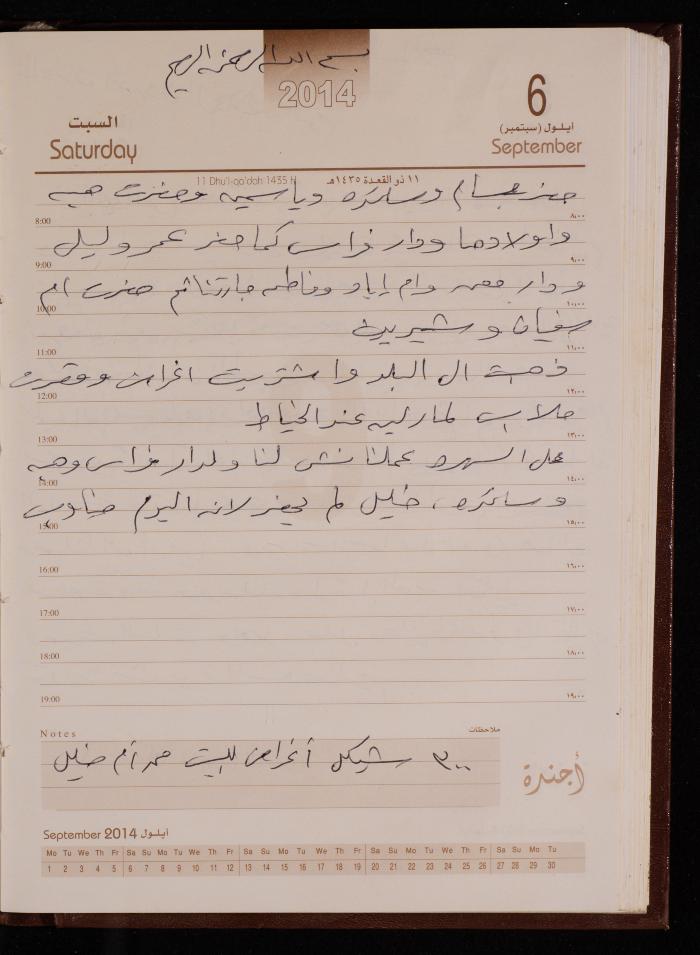 بسم الله الرحمن الرحيم
2014
6
السبت
ايلول (سبتمبر)
Saturday
September
11 Dhu'l-qa'dah 1435 H
١١ ذو القعدة ١٤٣٥هـ
حضر بسام وسائده وياسمين وحضرت هبه
8:00 ٨،٠٠
واولادها ودار فراس كما حضر عمر وليل
9:00 ٩،٠٠
ودار وام اياد وفاطمه جارتنا ثم حضرت ام
10:00 ١٠،٠٠
سفيان وشيرين
11:00 ١١،٠٠
ذهبت ال البلد واشتريت اغراض وقصرت
12:00 ١٢،٠٠
جلاب لماريه عند الخياط
13:00 ١٣،٠٠
عل السهره عملنا لنا ولدار فراس وهبه
14:00 ١٤،٠٠
وسائده، خليل لم يحضر لانه اليوم مناوب
15:00 ١٥،٠٠
16:00 ١٦،٠٠
17:00 ١٧،٠٠
18:00 ١٨،٠٠
19:00 ١٩،٠٠
Notes
ملاحظات
٣٠٠ شيكل أغراض للبيت من أم خليل
أجندة
September 2014 ايلول
Mo Tu We Th Fr Sa Su Mo Tu We Th Fr Sa Su Mo Tu We Th Fr Sa Su Mo Tu We Th Fr Sa Su Mo Tu
1 2 3 4 5 6 7 8 9 10 11 12 13 14 15 16 17 18 19 20 21 22 23 24 25 26 27 28 29 30